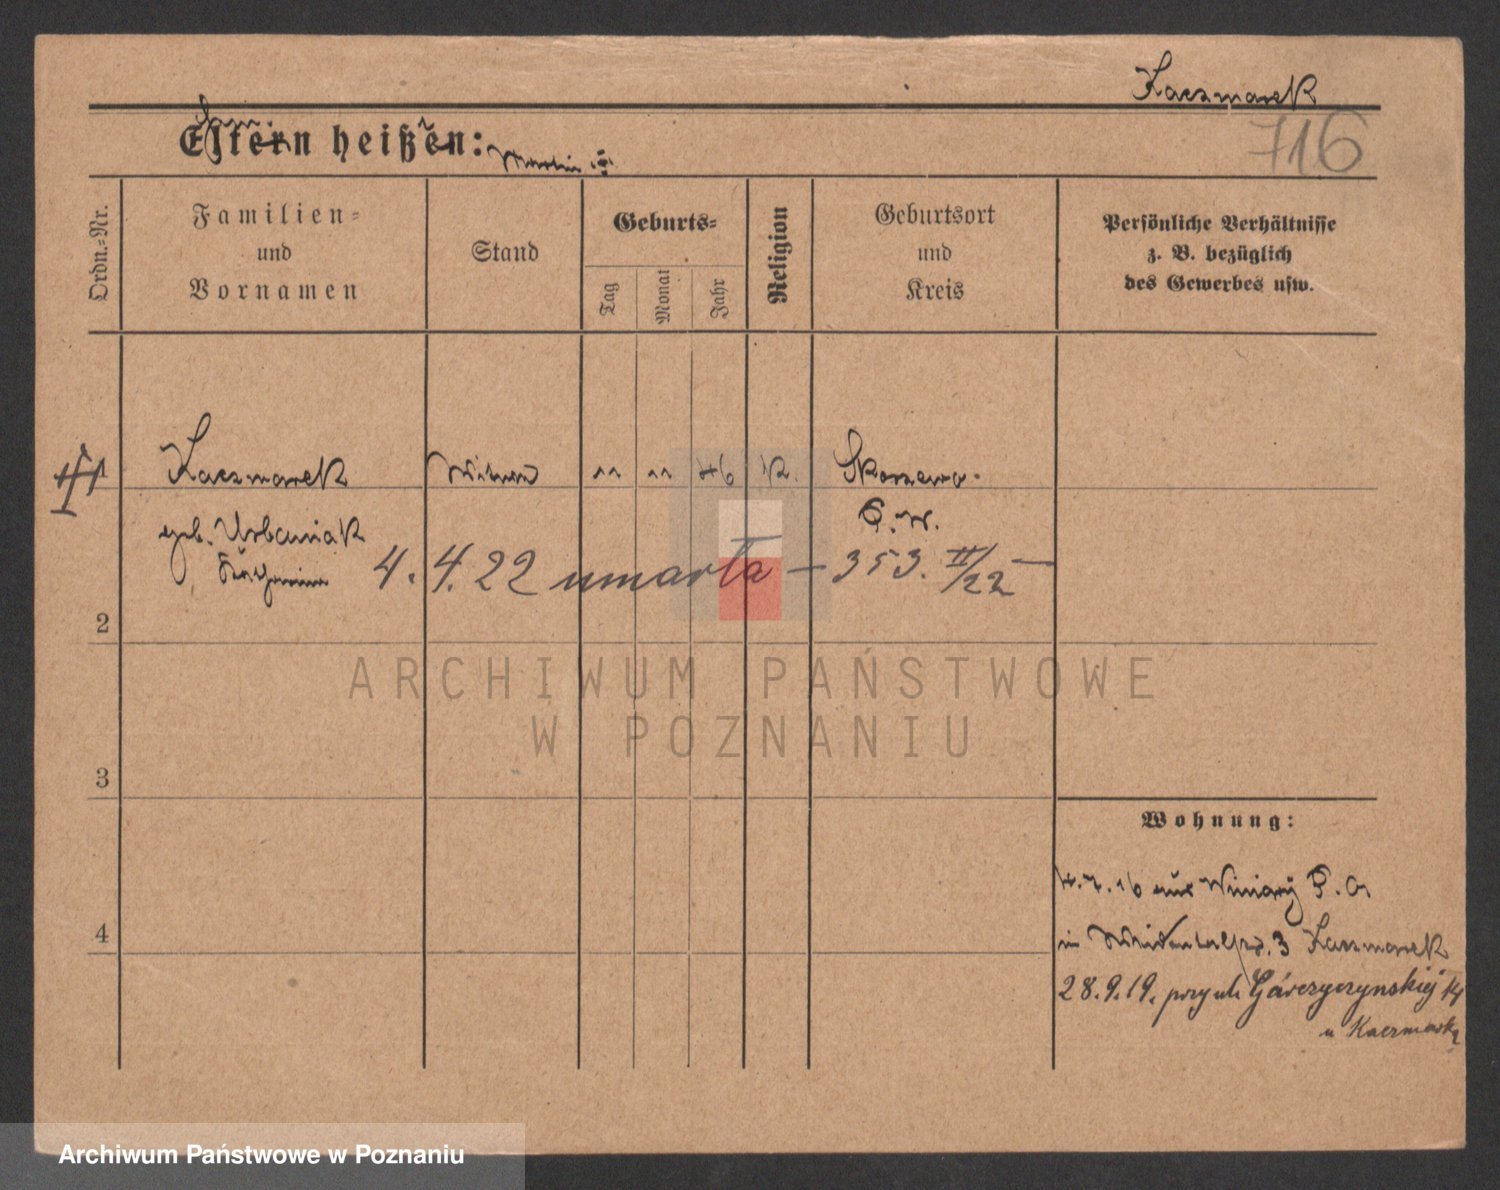 Kaczmarek
Eltern heißen:
716
Ordn.=Nr.
Familien=
und
Vornamen
Stand
Geburts=
Tag
Monat
Jahr
Religion
Geburtsort
und
Kreis
Persönliche Verhältnisse
z. B. bezüglich
des Gewerbes usw.
1 Kaczmarek Witwe 11 11 46 K.
geb. Urbaniak
4. 4. 22 umarła – 353. II/22 –
2
3
4
ARCHIWUM PAŃSTWOWE
W POZNANIU
Wohnung:
4.7.16 aus Winiary P. O.
in 3 Kaczmarek
28.9.19. przy ul. 14
u Kaczmarka
Archiwum Państwowe w Poznaniu